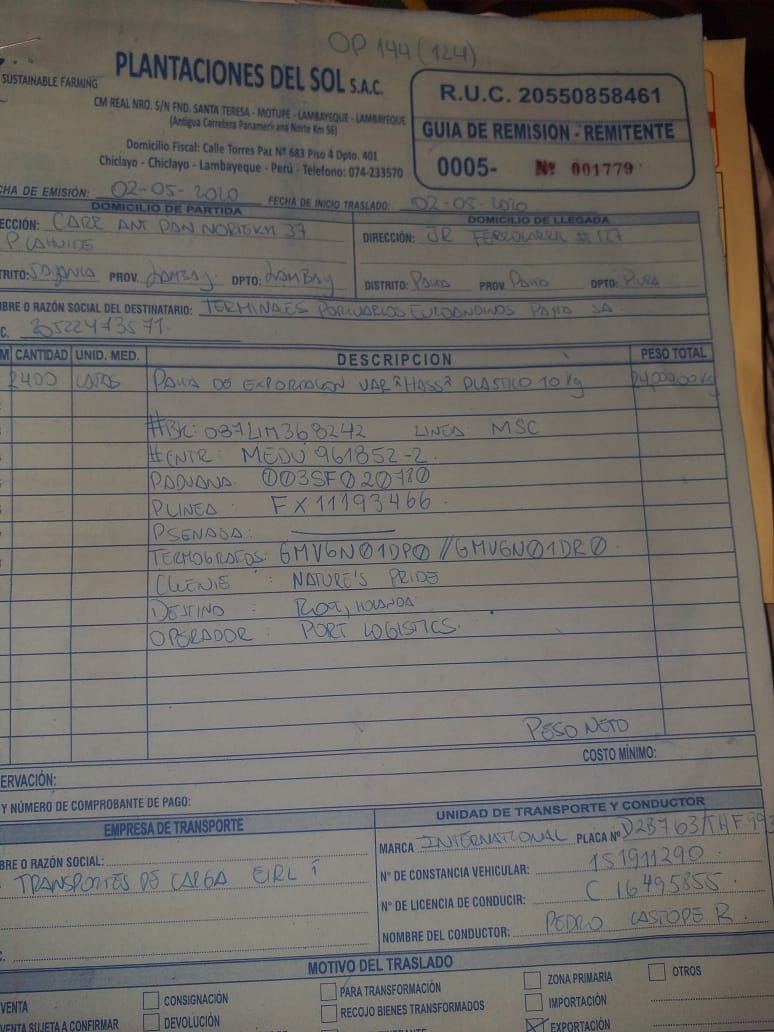 OP 144 (124)
SUSTAINABLE FARMING
PLANTACIONES DEL SOL S.A.C.
CM REAL NRO. S/N FND. SANTA TERESA - MOTUPE - LAMBAYEQUE - LAMBAYEQUE
(Antigua Carretera Panamericana Norte Km 56)
Domicilio Fiscal: Calle Torres Paz Nº 683 Piso 4 Dpto. 401
Chiclayo - Chiclayo - Lambayeque - Perú - Telefono: 074-233570
R.U.C. 20550858461
GUIA DE REMISION - REMITENTE
0005- Nº 001779
CHA DE EMISIÓN: 02-05-2020 FECHA DE INICIO TRASLADO: 02-05-2020
DOMICILIO DE PARTIDA
ECCIÓN: CARR ANT PAN NORTE KM 37
TRITO: PROV. LAMBAY. DPTO: LAMBAY
DOMICILIO DE LLEGADA
DIRECCIÓN: JR FERROCARRIL # 127
DISTRITO: PAITA PROV. PAITA DPTO: PIURA
BRE O RAZÓN SOCIAL DEL DESTINATARIO: TERMINALES PORTUARIOS EUROANDINOS PAITA SA
C. 20522473571
M CANTIDAD UNID. MED. DESCRIPCION PESO TOTAL
2400 CAJAS PALTA DE EXPORTACION VAR "HASS" PLASTICO 10 Kg 24000.00 Kg
#BK: 037LIM368242 LINEA MSC
#CNTR: MEDU 961852-2
PADUANA: 003SF020780
PLINEA: FX11193466
PSENASA:
TERMOGRAFOS: GMV6N01DP0 // GMV6N01DR0
CLIENTE : NATURE'S PRIDE
DESTINO : ROT, HOLANDA
OPERADOR : PORT LOGISTICS.
PESO NETO
COSTO MÍNIMO:
ERVACIÓN:
Y NÚMERO DE COMPROBANTE DE PAGO:
EMPRESA DE TRANSPORTE
BRE O RAZÓN SOCIAL:
TRANSPORTES DE CARGA EIRL
C.
UNIDAD DE TRANSPORTE Y CONDUCTOR
MARCA INTERNATIONAL PLACA Nº D2B763/THF993
Nº DE CONSTANCIA VEHICULAR: 151911290
Nº DE LICENCIA DE CONDUCIR: C 16495855
NOMBRE DEL CONDUCTOR: PEDRO CASTOPE R.
MOTIVO DEL TRASLADO
VENTA CONSIGNACIÓN PARA TRANSFORMACIÓN ZONA PRIMARIA OTROS
VENTA SUJETA A CONFIRMAR DEVOLUCIÓN RECOJO BIENES TRANSFORMADOS IMPORTACIÓN
EXPORTACIÓN